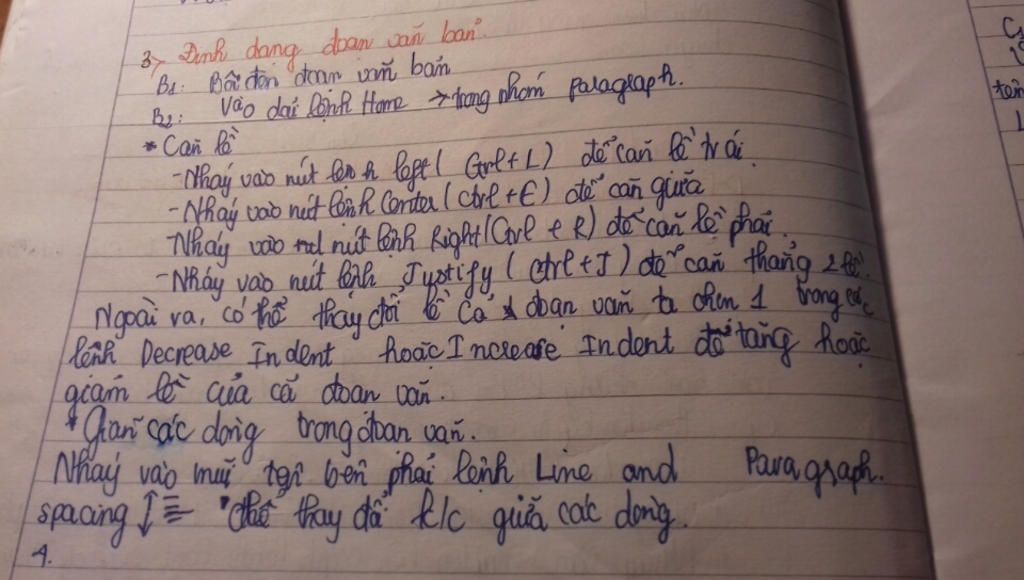 3, Định dạng đoạn văn bản.
B1: Bôi đen đoạn văn bản
B2: Vào dải lệnh Home → trong nhóm Paragraph.
* Căn lề
- Nháy vào nút lệnh left ( Ctrl + L ) để căn lề trái.
- Nháy vào nút lệnh Center ( Ctrl + E ) để căn giữa
- Nháy vào nút lệnh Right ( Ctrl + R ) để căn lề phải.
- Nháy vào nút lệnh Justify ( Ctrl + J ) để căn thẳng 2 lề.
Ngoài ra, có thể thay đổi lề cả đoạn văn ta chọn 1 trong các
lệnh Decrease Indent hoặc Increase Indent để tăng hoặc
giảm lề của cả đoạn văn.
* Giãn các dòng trong đoạn văn.
Nháy vào mũi tên bên phải lệnh Line and Paragraph.
spacing để thay đổi k/c giữa các dòng.
4.
Cs
tên